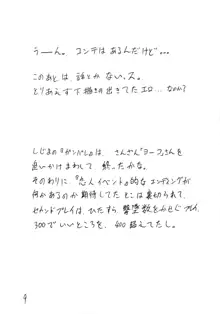 うーん。コンテはあるんだけど…
このあとは、話とかない。ス。
とりあえず下描きの出きてたエロ…なカて
しじまの『ガンパレ』は、さんざんヨーコさんを
追いかけまわして終ったかな。
そのわりに『恋人イベント』的なエンディングが
何かあるのか期待してたとこは裏切られて、
セカンドプレイは、ひたすら、撃墜数をかせぐプレイ、
300でいいところを、400超えてたし。
9